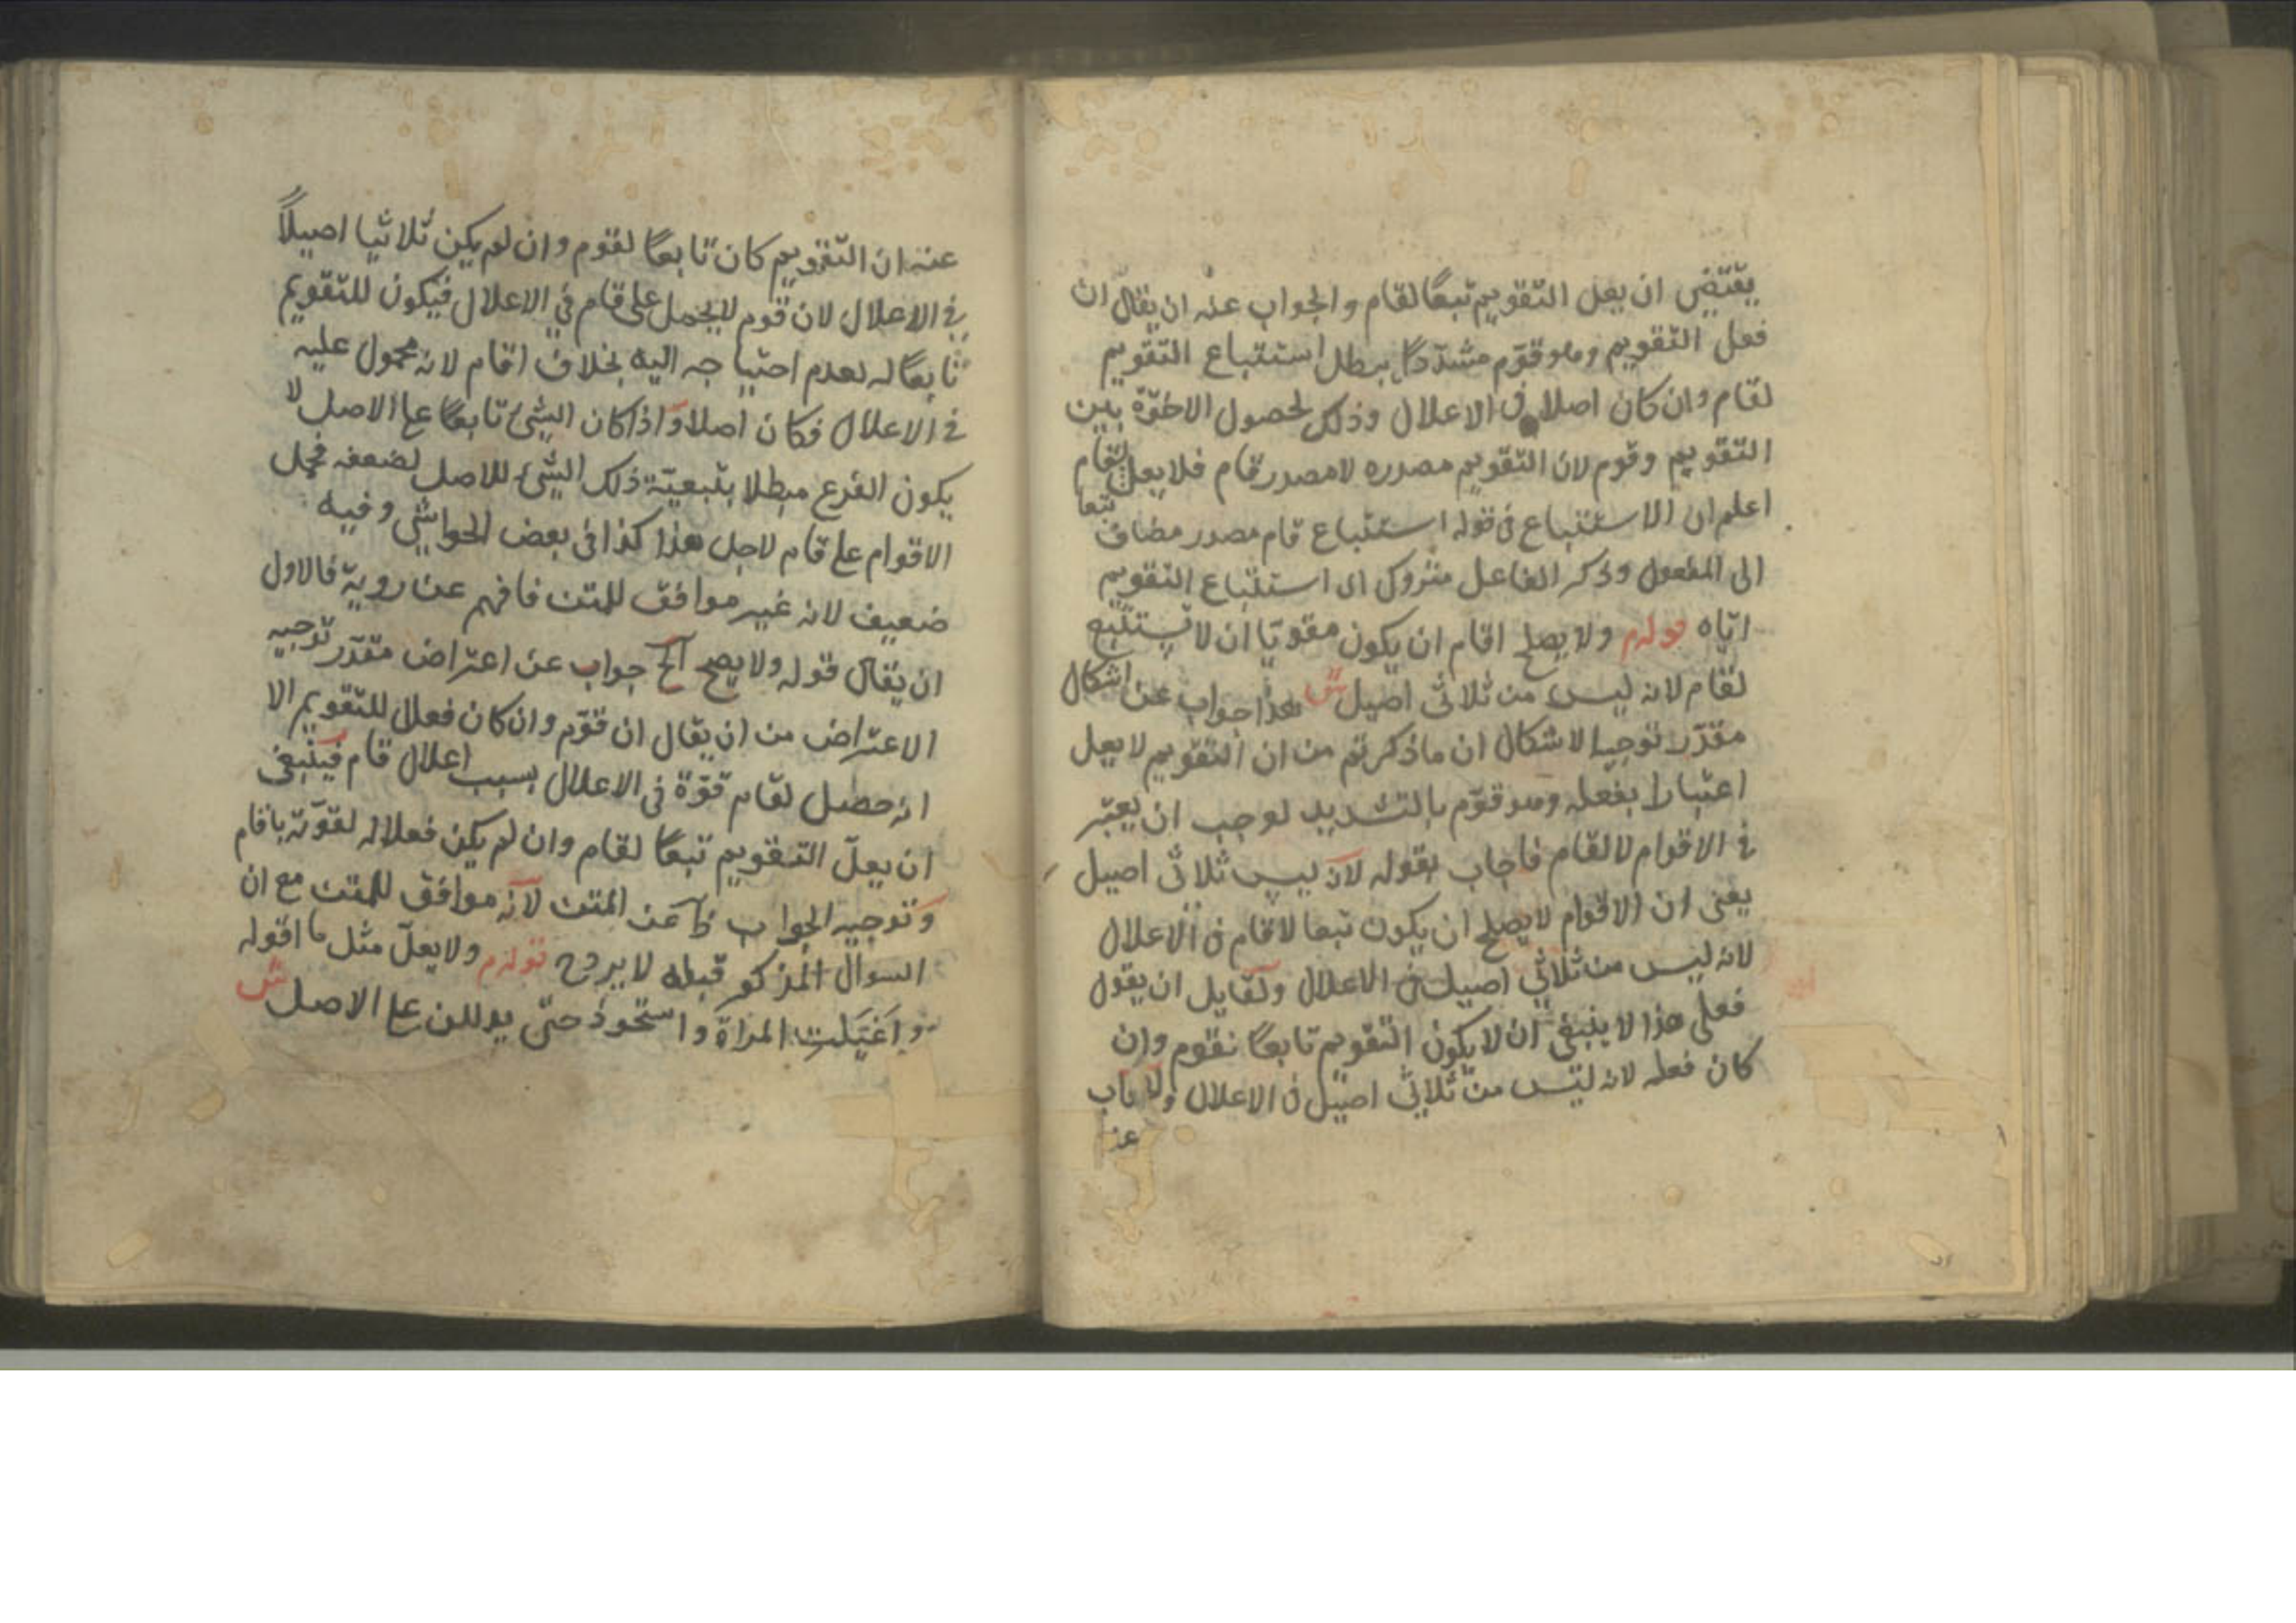 يقتضى ان يعل التقويم تبعًا لقام والجواب عنه ان يقال ان
فعل التقويم وهو قوّم مشدّدًا يبطل استتباع التقويم
لقام وان كان اصلا فى الاعلال وذلك لحصول الاخوّة بين
التقويم وقوم لان التقويم مصدره لا مصدر قام فلا يعل لقام
تبعا
اعلم ان الاستتباع فى قوله استتباع قام مصدر مضاف
الى المفعول وذكر الفاعل متروك اى استتباع التقويم
ايّاه قوله م ولا يصلح اقام ان يكون مقويّا ان لا يستتبع
لقام لانه ليس من ثلاثى اصيل ش هذا جواب عن اشكال
مقدّر توجيه الاشكال ان ما ذكرتم من ان التقويم لا يعل
اعتبارا بفعله وهو قوّم بالتشديد لوجب ان يعتبر
فى الاقوام لا لقام فاجاب بقوله لانه ليس ثلاثى اصيل
يعنى ان الاقوام لا يصلح ان يكون تبعا لاقام فى الاعلال
لانه ليس من ثلاثي اصيل فى الاعلال ولقايل ان يقول
فعلى هذا لا ينبغى ان لا يكون التقويم تابعًا نقوم وان
كان فعله لانه ليس من ثلاثى اصيل فى الاعلال
عنه ان التقويم كان تابعًا لقوم وان لم يكن ثلاثيا اصيلاً
فى الاعلال لان قوم لا يحمل على قام في الاعلال فيكون للتقويم
تابعًا له لعدم احتياجه اليه بخلاف اقام لانه محمول عليه
فى الاعلال فكان اصلا واذا كان الشئ تابعًا على الاصل لا
يكون الفرع مبطلا بتبعيّة ذلك الشئ للاصل لضعفه فحمل
الاقوام على قام لاجل هذا كذا فى بعض الحواشى وفيه
ضعيف لانه غير موافق للمتن فافهم عن روية فالاول
ان يقال قوله ولا يصح الخ جواب عن اعتراض مقدّر توجيه
الاعتراض من ان يقال ان قوّم وان كان فعلا للتقويم الا
انه حصل لقام قوّة فى الاعلال بسبب اعلال قام فينبغى
ان يعلّ التقويم تبعًا لقام وان لم يكن فعلا له لقوّته باقام
وتوجيه الجواب كما عن المتن لانه موافق للمتن مع ان
السوال المذكور قبله لا يرد ح قوله م ولا يعلّ مثل ما اقوله
واغيَلَت المراة واستحوذ حتى يدللن على الاصل ش